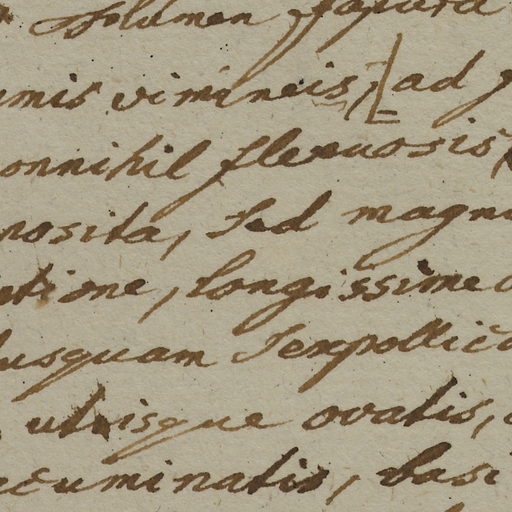 Solumen
umis vimineis, ad
onnihil flexuosis,
nosita, sed magni
atione, longissime
usquam sempollica
utrisque ovatis,
acuminatis, basi